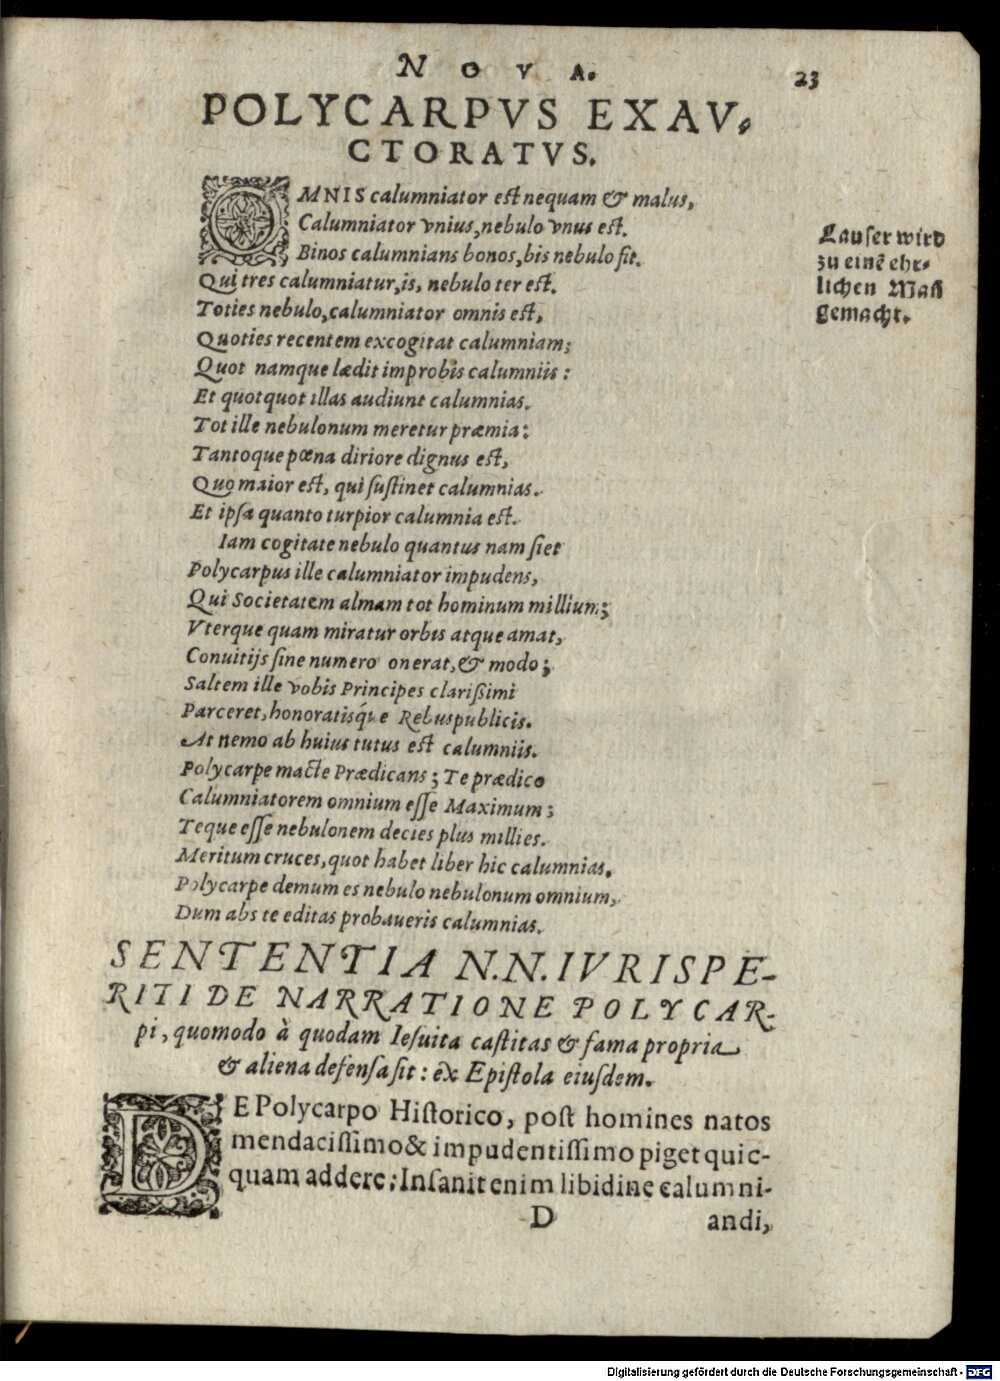 NOVA. 23
POLYCARPVS EXAV-
CTORATVS.
OMNIS calumniator est nequam & malus,
Calumniator vnius, nebulo vnus est.
Binos calumnians bonos, bis nebulo fit.
Qui tres calumniatur, is, nebulo ter est.
Toties nebulo, calumniator omnis est,
Quoties recentem excogitat calumniam;
Quot namque lædit improbis calumniis:
Et quotquot illas audiunt calumnias.
Tot ille nebulonum meretur præmia:
Tantoque pœna diriore dignus est,
Quo maior est, qui sustinet calumnias.
Et ipsa quanto turpior calumnia est.
Iam cogitate nebulo quantus nam siet
Polycarpus ille calumniator impudens,
Qui Societatem almam tot hominum millium;
Vterque quam miratur orbis atque amat,
Conuitijs sine numero onerat, & modo;
Saltem ille vobis Principes clarißimi
Parceret, honoratisq́ue Rebuspublicis.
At nemo ab huius tutus est calumniis.
Polycarpe macte Prædicans; Te prædico
Calumniatorem omnium esse Maximum;
Teque esse nebulonem decies plus millies.
Meritum cruces, quot habet liber hic calumnias.
Polycarpe demum es nebulo nebulonum omnium,
Dum abs te editas probaueris calumnias.
Lauser wird
zu einẽ ehr-
lichen Mañ
gemacht.
SENTENTIA N.N. IVRISPE-
RITI DE NARRATIONE POLYCAR-
pi, quomodo à quodam Iesuita castitas & fama propria
& aliena defensa sit: ex Epistola eiusdem.
DE Polycarpo Historico, post homines natos
mendacissimo & impudentissimo piget quic-
quam addere; Insanit enim libidine calumni-
D andi,
Digitalisierung gefördert durch die Deutsche Forschungsgemeinschaft - DFG